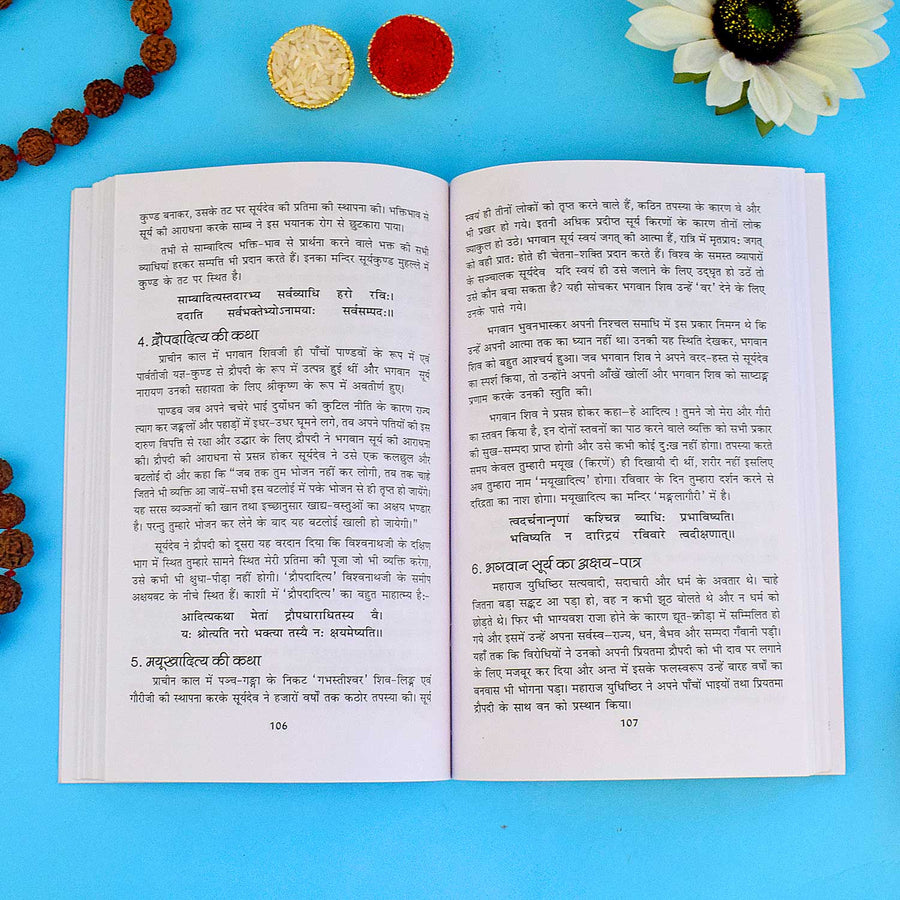 कुण्ड बनाकर, उसके तट पर सूर्यदेव की प्रतिमा की स्थापना की। भक्तिभाव से
सूर्य की आराधना करके साम्ब ने इस भयानक रोग से छुटकारा पाया।
तभी से साम्बादित्य भक्ति-भाव से प्रार्थना करने वाले भक्त की सभी
व्याधियां हरकर सम्पत्ति भी प्रदान करते हैं। इनका मन्दिर सूर्यकुण्ड मुहल्ले में
कुण्ड के तट पर स्थित है।
साम्बादित्यस्तदारभ्य सर्वव्याधि हरो रविः।
ददाति सर्वभक्तेभ्योऽनामयाः सर्वसम्पदः॥
4. द्रौपदादित्य की कथा
प्राचीन काल में भगवान शिवजी ही पाँचों पाण्डवों के रूप में एवं
पार्वतीजी यज्ञ-कुण्ड से द्रौपदी के रूप में उत्पन्न हुई थीं और भगवान सूर्य
नारायण उनकी सहायता के लिए श्रीकृष्ण के रूप में अवतीर्ण हुए।
पाण्डव जब अपने चचेरे भाई दुर्योधन की कुटिल नीति के कारण राज्य
त्याग कर जङ्गलों और पहाड़ों में इधर-उधर घूमने लगे, तब अपने पतियों की इस
दारुण विपत्ति से रक्षा और उद्धार के लिए द्रौपदी ने भगवान सूर्य की आराधना
की। द्रौपदी की आराधना से प्रसन्न होकर सूर्यदेव ने उसे एक कलछुल और
बटलोई दी और कहा कि “जब तक तुम भोजन नहीं कर लोगी, तब तक चाहे
जितने भी व्यक्ति आ जायें-सभी इस बटलोई में पके भोजन से ही तृप्त हो जायेंगे।
यह सरस व्यञ्जनों की खान तथा इच्छानुसार खाद्य-वस्तुओं का अक्षय भण्डार
है। परन्तु तुम्हारे भोजन कर लेने के बाद यह बटलोई खाली हो जायेगी।”
सूर्यदेव ने द्रौपदी को दूसरा यह वरदान दिया कि विश्वनाथजी के दक्षिण
भाग में स्थित तुम्हारे सामने स्थित मेरी प्रतिमा की पूजा जो भी व्यक्ति करेगा,
उसे कभी भी क्षुधा-पीड़ा नहीं होगी। ‘द्रौपदादित्य’ विश्वनाथजी के समीप
अक्षयवट के नीचे स्थित हैं। काशी में ‘द्रौपदादित्य’ का बहुत माहात्म्य है:-
आदित्यकथा मेतां द्रौपद्याराधितस्य वै।
यः श्रोत्यति नरो भक्त्या तस्यै नः क्षयमेष्यति॥
5. मयूखादित्य की कथा
प्राचीन काल में पञ्च-गङ्गा के निकट ‘गभस्तीश्वर’ शिव-लिङ्ग एवं
गौरीजी की स्थापना करके सूर्यदेव ने हजारों वर्षों तक कठोर तपस्या की। सूर्य
106
स्वयं ही तीनों लोकों को तृप्त करने वाले हैं, कठिन तपस्या के कारण वे और
भी प्रखर हो गये। इतनी अधिक प्रदीप्त सूर्य किरणों के कारण तीनों लोक
व्याकुल हो उठे। भगवान सूर्य स्वयं जगत् की आत्मा हैं, रात्रि में मृतप्रायः जगत्
को वही प्रातः होते ही चेतना-शक्ति प्रदान करते हैं। विश्व के समस्त व्यापारों
के सञ्चालक सूर्यदेव यदि स्वयं ही उसे जलाने के लिए उद्धृत हो उठें तो
उसे कौन बचा सकता है? यही सोचकर भगवान शिव उन्हें ‘वर’ देने के लिए
उनके पास गये।
भगवान भुवनभास्कर अपनी निश्चल समाधि में इस प्रकार निमग्न थे कि
उन्हें अपनी आत्मा तक का ध्यान नहीं था। उनकी यह स्थिति देखकर, भगवान
शिव को बहुत आश्चर्य हुआ। जब भगवान शिव ने अपने वरद-हस्त से सूर्यदेव
का स्पर्श किया, तो उन्होंने अपनी आँखें खोलीं और भगवान शिव को साष्टाङ्ग
प्रणाम करके उनकी स्तुति की।
भगवान शिव ने प्रसन्न होकर कहा-हे आदित्य ! तुमने जो मेरा और गौरी
का स्तवन किया है, इन दोनों स्तवनों का पाठ करने वाले व्यक्ति को सभी प्रकार
की सुख-सम्पदा प्राप्त होगी और उसे कभी कोई दुःख नहीं होगा। तपस्या करते
समय केवल तुम्हारी मयूख (किरणें) ही दिखायी दी थीं, शरीर नहीं इसलिए
अब तुम्हारा नाम ‘मयूखादित्य’ होगा। रविवार के दिन तुम्हारा दर्शन करने से
दरिद्रता का नाश होगा। मयूखादित्य का मन्दिर ‘मङ्गलागौरी’ में है।
त्वदर्चनान्नृणां कश्चिन्न व्याधिः प्रभाविष्यति।
भविष्यति न दारिद्र्यं रविवारे त्वदीक्षणात्॥
6. भगवान सूर्य का अक्षय-पात्र
महाराज युधिष्ठिर सत्यवादी, सदाचारी और धर्म के अवतार थे। चाहे
जितना बड़ा सङ्कट आ पड़ा हो, वह न कभी झूठ बोलते थे और न धर्म को
छोड़ते थे। फिर भी भाग्यवश राजा होने के कारण द्यूत-क्रीड़ा में सम्मिलित हो
गये और इसमें उन्हें अपना सर्वस्व-राज्य, धन, वैभव और सम्पदा गँवानी पड़ी।
यहाँ तक कि विरोधियों ने उनको अपनी प्रियतमा द्रौपदी को भी दाव पर लगाने
के लिए मजबूर कर दिया और अन्त में इसके फलस्वरूप उन्हें वारह वर्षों का
बनवास भी भोगना पड़ा। महाराज युधिष्ठिर ने अपने पाँचों भाइयों तथा प्रियतमा
द्रौपदी के साथ वन को प्रस्थान किया।
107